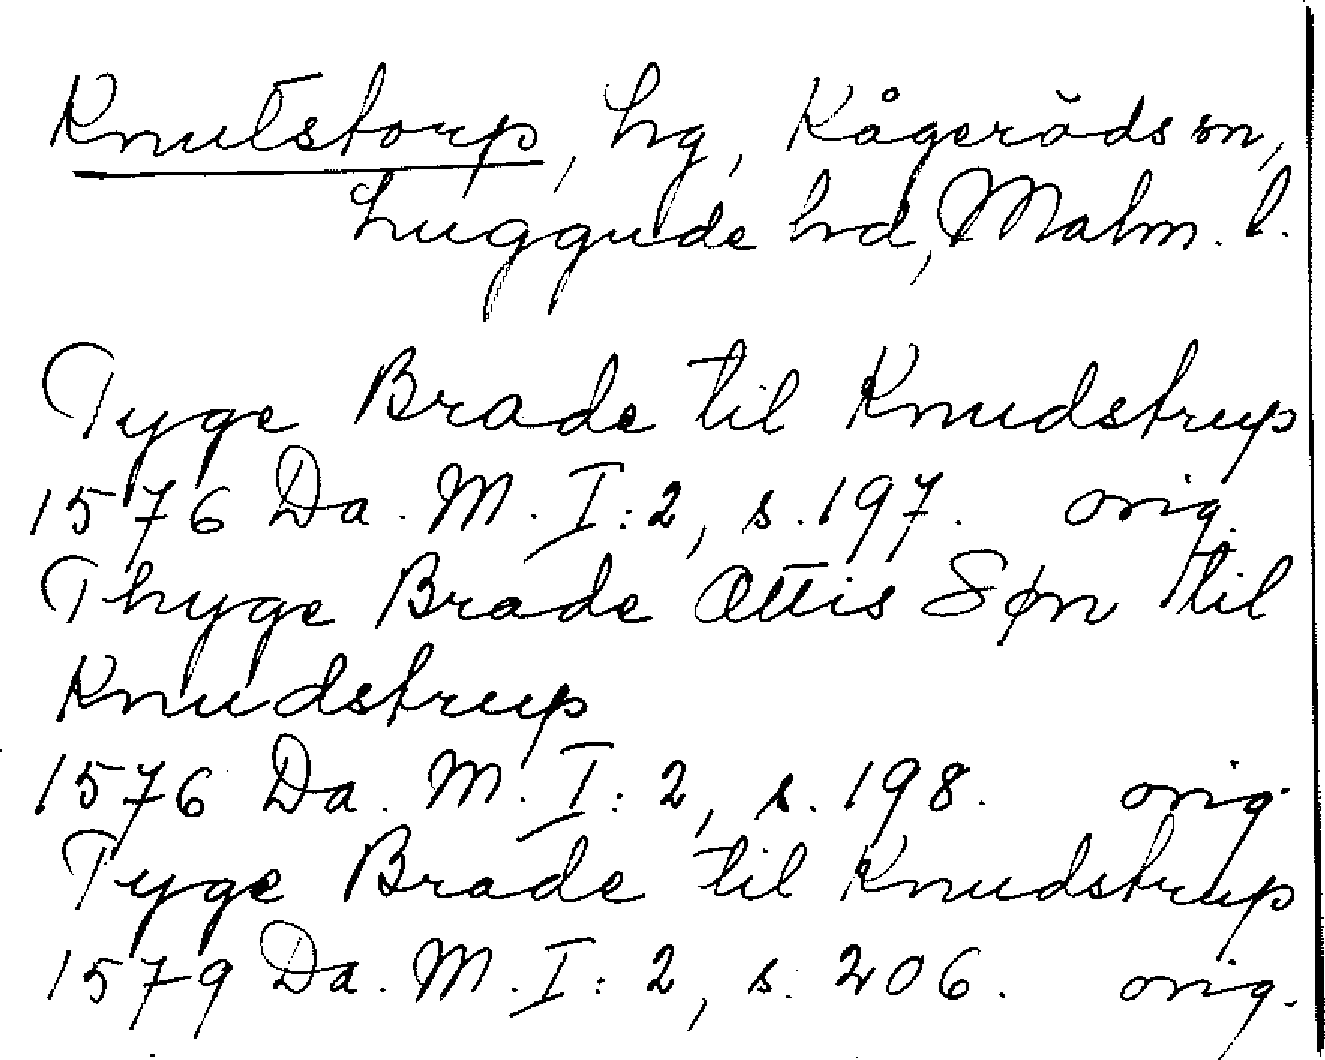 Knutstorp, hg, Kågeröds sn,
Luggude hd, Malm. l.
Tyge Brade til Knudstrup
1576 Da. M. I: 2, s. 197. orig.
Thyge Brade Ottis Søn til
Knudstrup
1576 Da. M. I: 2, s. 198. orig.
Tyge Brade til Knudstrup
1579 Da. M. I: 2, s. 206. orig.